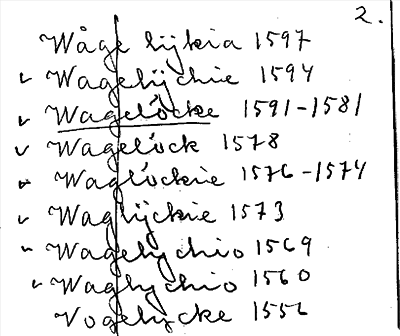 2.
Wåge lÿkia 1597
✓ Wagelÿchie 1594
✓ Wagelöcke 1591-1581
✓ Wagelöck 1578
✓ Waglöckie 1576-1574
✓ Waglÿckie 1573
✓ Wagelychio 1569
✓ Waglychio 1560
Vogelycke 1556